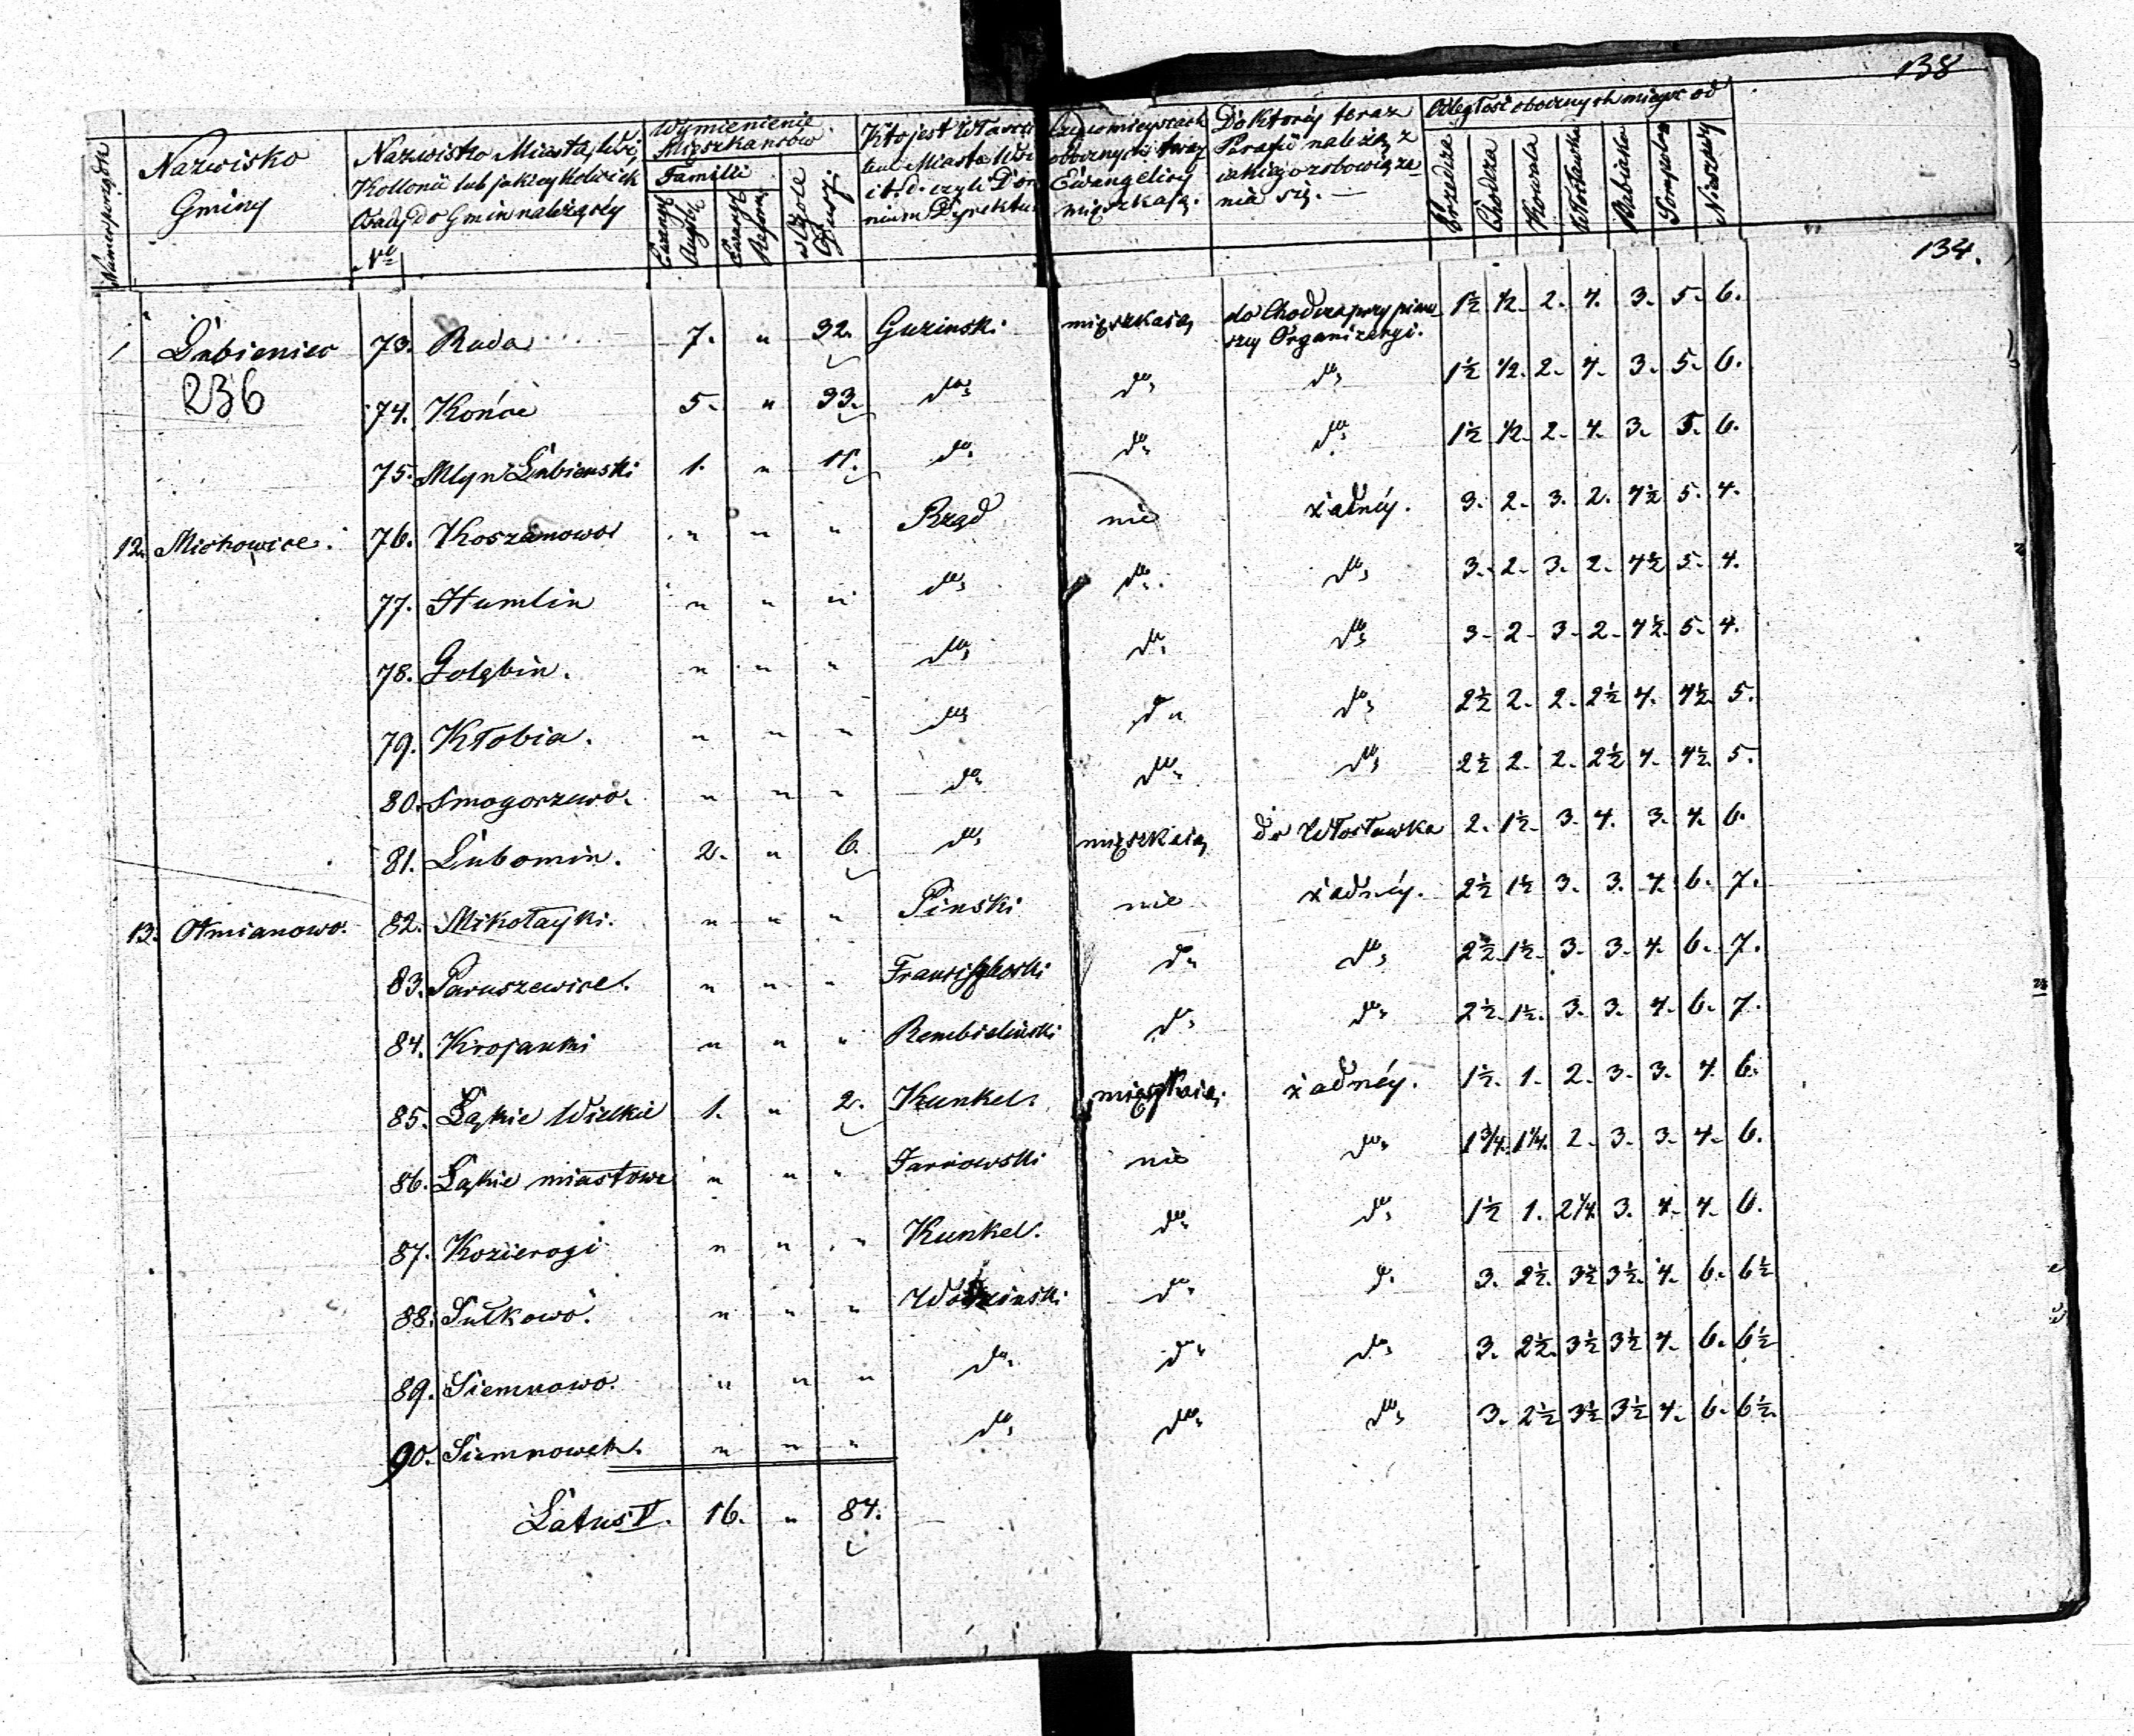 138
134.
Numer porządk
Nazwisko Gminy
Nazwisko Miasta, Wsi, Kollonii lub jakieykolwiek Osady do Gmin należący
No
Wymienienie Mięszkanców
Familii
Ewangl: Augsb:
Ewangl: Reform:
w Ogóle Dusz.
Kto jest Właści
ciel Miasta Wsi
i t. d. czyli Do
nium Dyrektu
Czy w mieyscach obocznych teraz Ewangelicy mięszkaią.
Do którey teraz Parafii należą, z iakiego zobowiąze nia się. —
Odległość obocznych mieysc od
Przedcza Chodcza Kowala Włocławka Babiaka Sompolna Nieszawy
1 Lubieniec 73. Ruda 7. " 32. Guzinski mięszkaią do Chodcza przy pierw
szey Organizacyi. 1½ ½. 2. 4. 3. 5. 6.
236
74. Końce 5. " 33. do do do 1½ ½. 2. 4. 3. 5. 6.
75. Młyn Lubienski 1. " 11. do do do 1½ ½. 2. 4. 3. 5. 6.
12. Michowice. 76. Koszanowo " " " Rząd nie żadnéy. 3. 2. 3. 2. 4½ 5. 4.
77. Humlin " " " do do do 3. 2. 3. 2. 4½ 5. 4.
78. Gołębin. " " " do do do 3. 2. 3. 2. 4½. 5. 4.
79. Kłobia. " " " do do do 2½ 2. 2. 2½ 4. 4½. 5.
80. Smogorzewo. " " " do do do 2½ 2. 2. 2½ 4. 4½. 5.
81. Lubomin. 2. " 6. do mięszkaią do Włocławka 2. 1½. 3. 4. 3. 4. 6.
13. Otmianowo. 82. Mikołayki. " " " Pinski nie żadnéy. 2½ 1½ 3. 3. 4. 6. 7.
83. Paruszewice. " " " do do 2½. 1½. 3. 3. 4. 6. 7.
84. Krojanki " " " Rembieliński do do 2½. 1½. 3. 3. 4. 6. 7.
85. Łąkie Wielkie 1. " 2. Kunkel. mięszkaią. żadnéy. 1½. 1. 2. 3. 3. 4. 6.
86. Łąkie miastowe " " " Jarnowski nie do 1¾. 1¼. 2. 3. 3. 4. 6.
87. Kozierogi " " " Kunkel. do do 1½ 1. 2¼. 3. 4. 4. 6.
88. Sułkowo. " " " Wodzinski do do 3. 2½. 3½ 3½. 4. 6. 6½
89. Siemnowo. " " " do do do 3. 2½. 3½ 3½ 4. 6. 6½
90. Siemnowek. " " " do do do 3. 2½ 3½ 3½ 4. 6. 6½.
Latus V. 16. " 84.